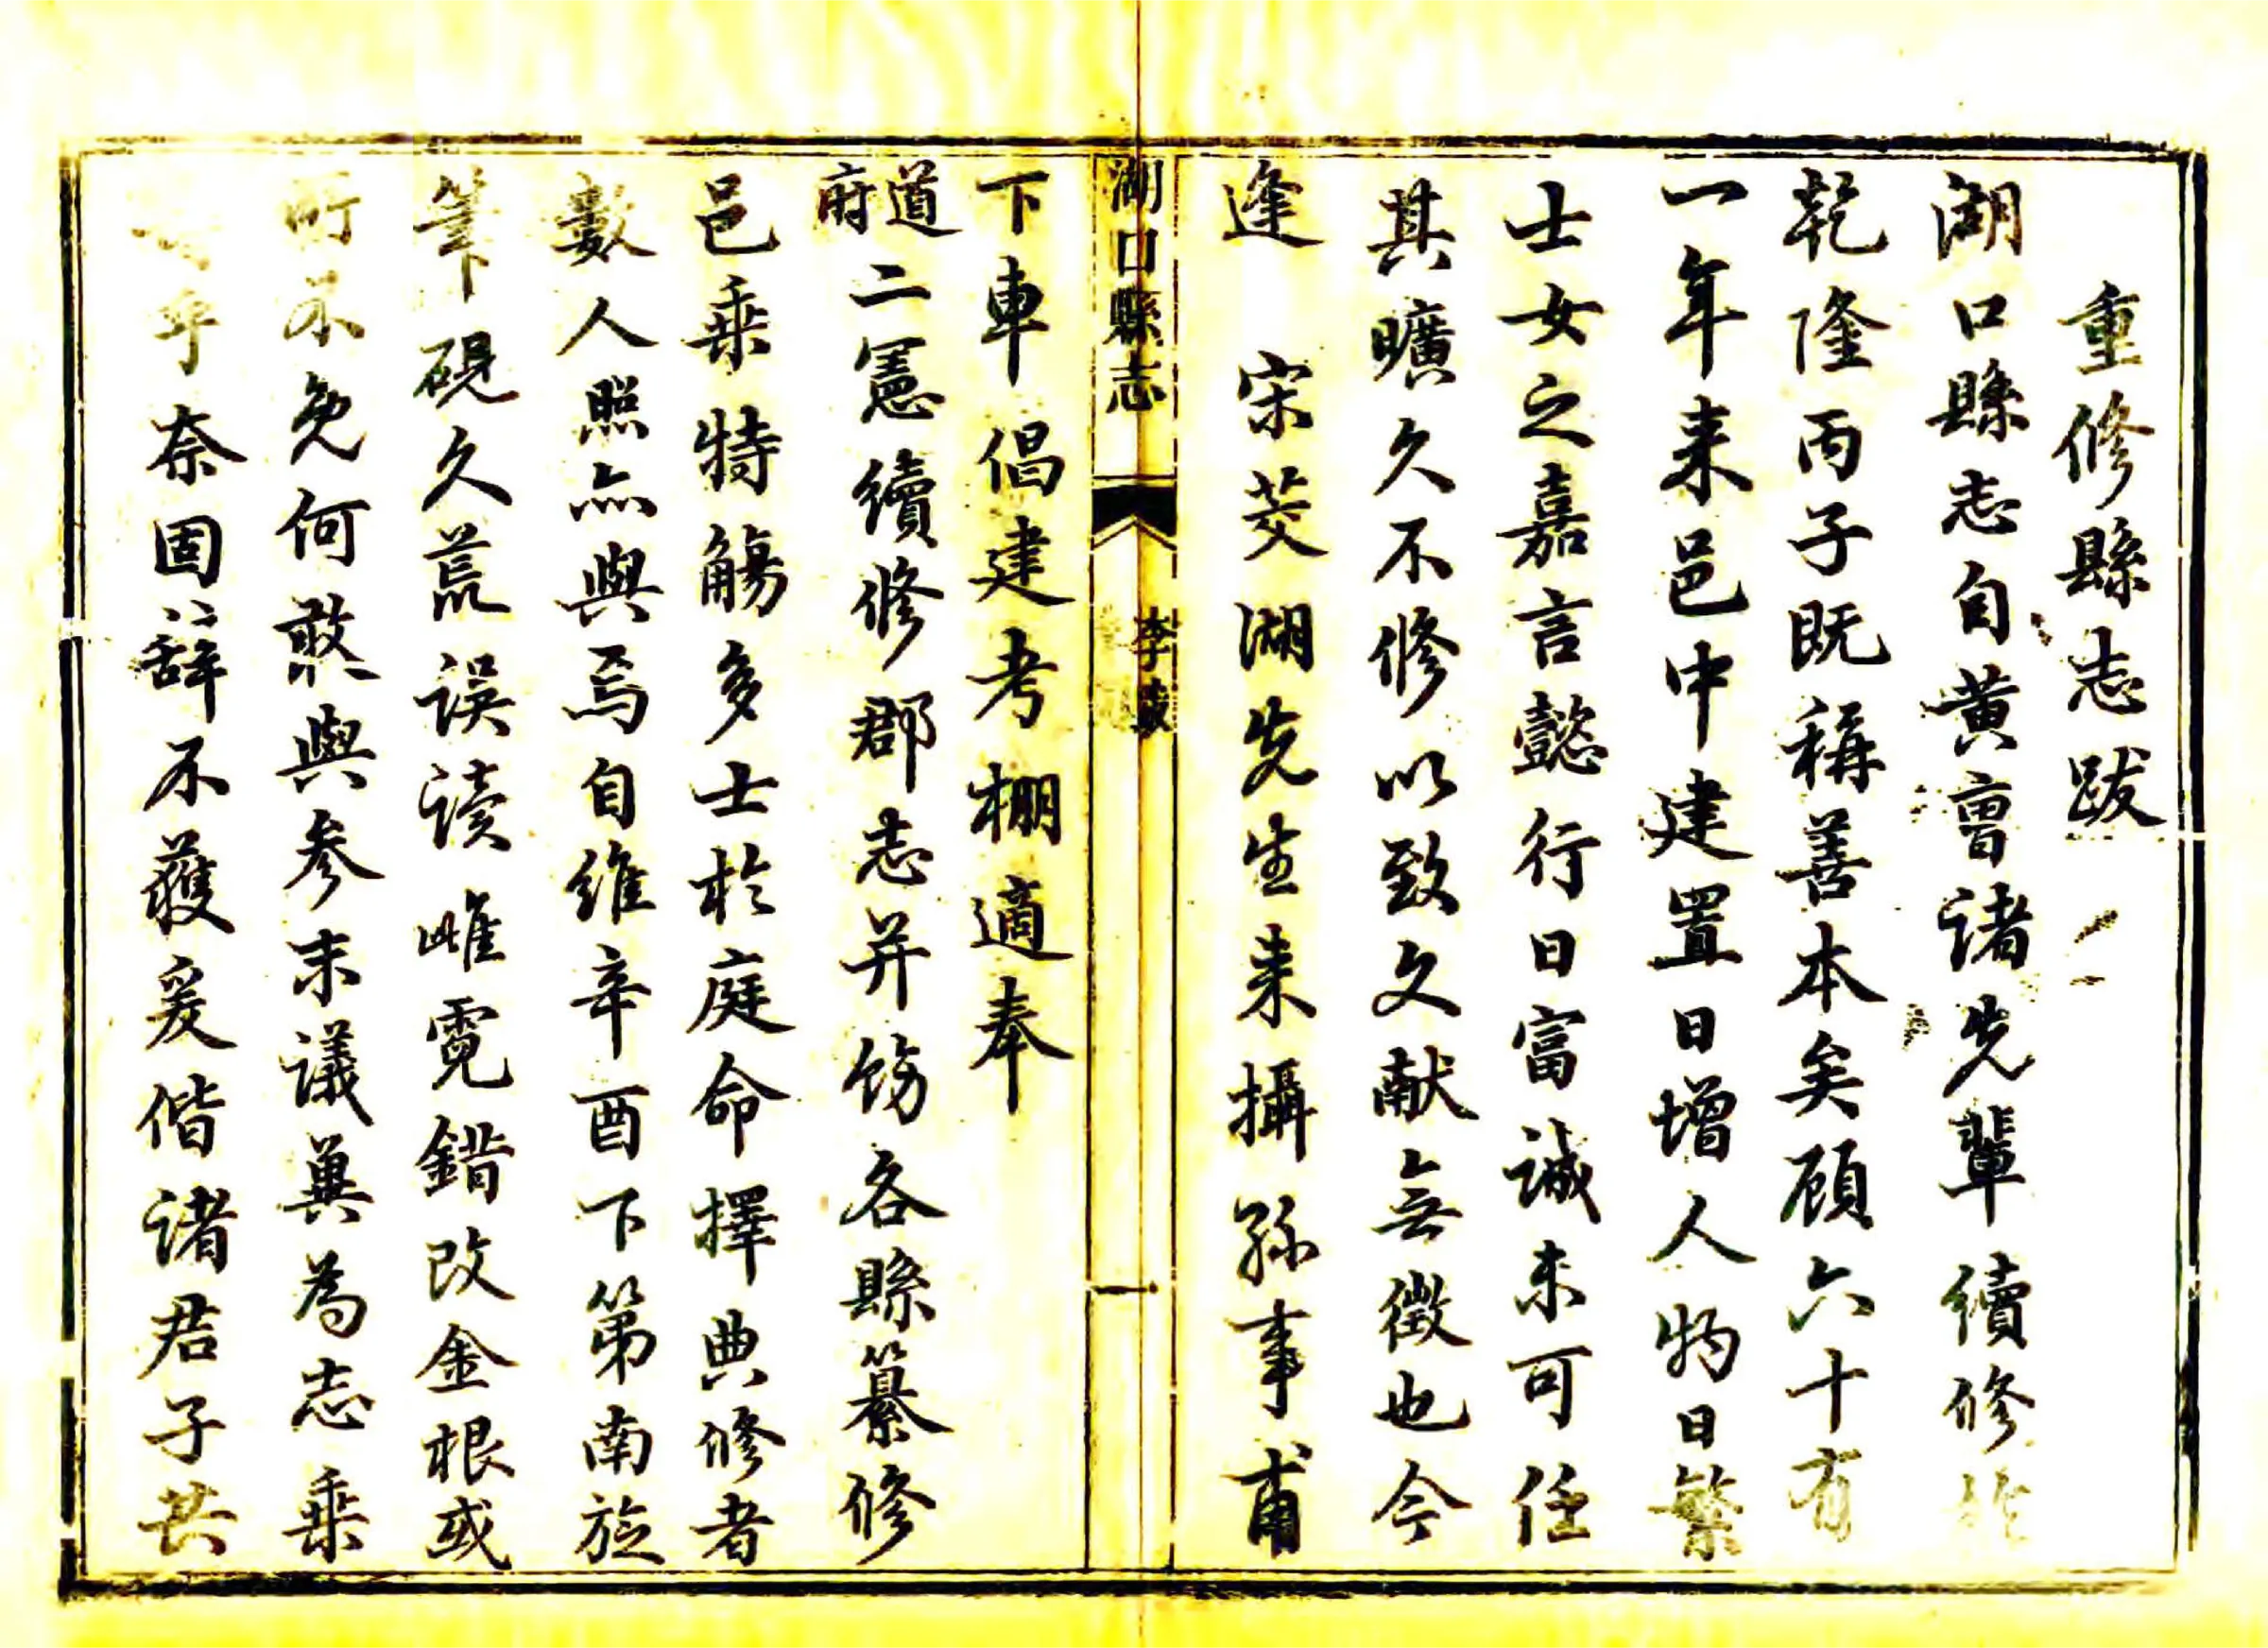 重修縣志跋
湖口縣志自黃曹諸先輩續修於
乾隆丙子既稱善本矣顧六十有
一年来邑中建置日增人物日繁
士女之嘉言懿行日富誠未可任
其曠久不修以致文献無徵也今
逢 宋茭湖先生来攝孫事甫
湖口縣志 李跋 一
下車倡建考棚適奉
道府二憲續修郡志并飭各縣纂修
邑乘特觴多士於庭命擇典修者
數人照亦與焉自維辛酉下第南旋
筆硯久荒誤读雌霓錯改金根或
所不免何敢與参末議兾為志乘
乎奈固辞不獲爰偕諸君子共